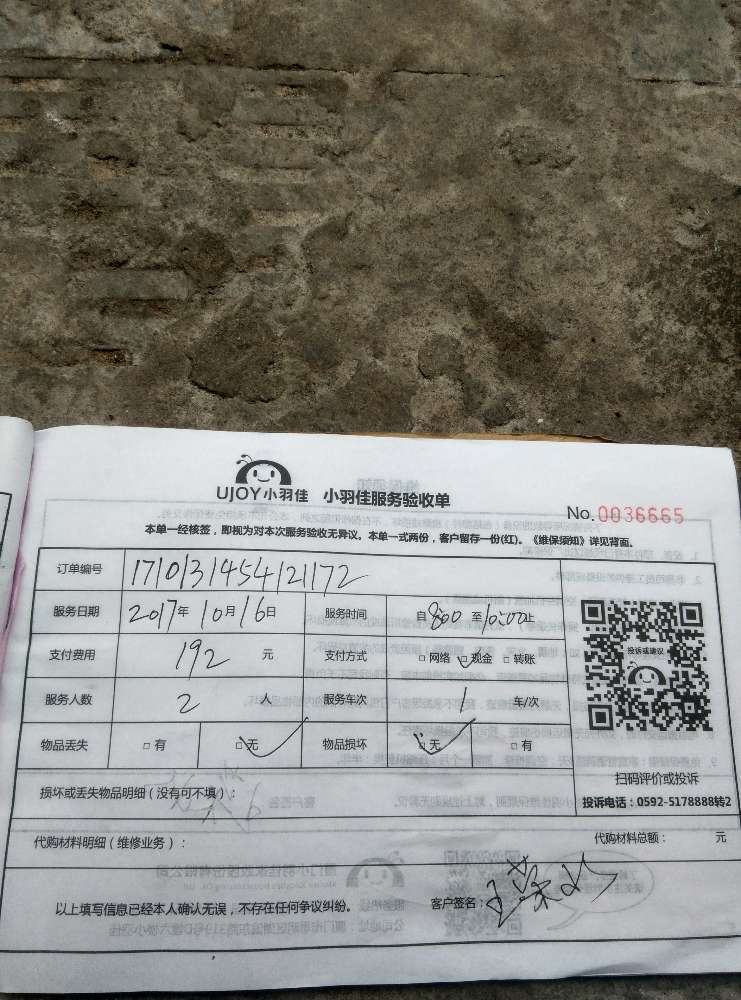 UJOY小羽佳 小羽佳服务验收单
No.0036665
本单一经核签，即视为对本次服务验收无异议。本单一式两份，客户留存一份(红)。《维保须知》详见背面。
订单编号 171031454121172
服务日期 2017年10月16日 服务时间 自8:00至10:00止
支付费用 192 元 支付方式 □网络 □现金 □转账
服务人数 2 人 服务车次 1 车/次
物品丢失 □有 □无 物品损坏 □无 □有
投诉或建议
扫码评价或投诉
投诉电话：0592-5178888转2
损坏或丢失物品明细（没有可不填）：
代购材料明细（维修业务）： 代购材料总额： 元
以上填写信息已经本人确认无误，不存在任何争议纠纷。 客户签名：